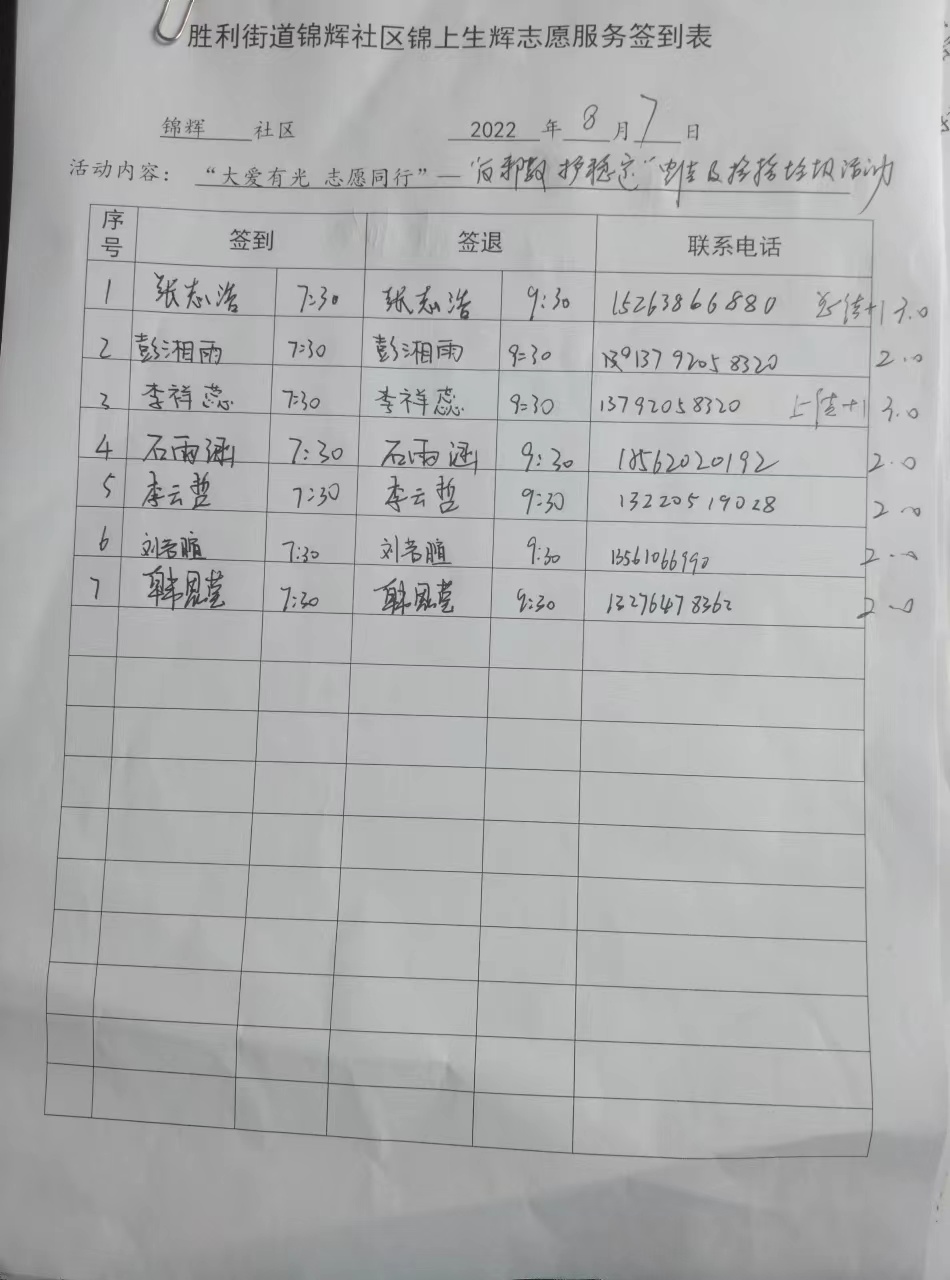 胜利街道锦辉社区锦上生辉志愿服务签到表
锦辉 社区 2022 年 8 月 7 日
活动内容： “大爱有光 志愿同行”—“反邪教 护稳定”宣传及捡拾垃圾活动
序号 签到 签退 联系电话
1 张志浩 7:30 张志浩 9:30 15263866880 +1 3.0
2 彭湘雨 7:30 彭湘雨 9:30 13792058320 2.0
3 李祥蕊 7:30 李祥蕊 9:30 13792058320 上传+1 3.0
4 石雨涵 7:30 石雨涵 9:30 18562020192 2.0
5 李云哲 7:30 李云哲 9:30 13220519028 2.0
6 刘若暄 7:30 刘若暄 9:30 13561066990 2.0
7 韩思莹 7:30 韩思莹 9:30 13276478362 2.0